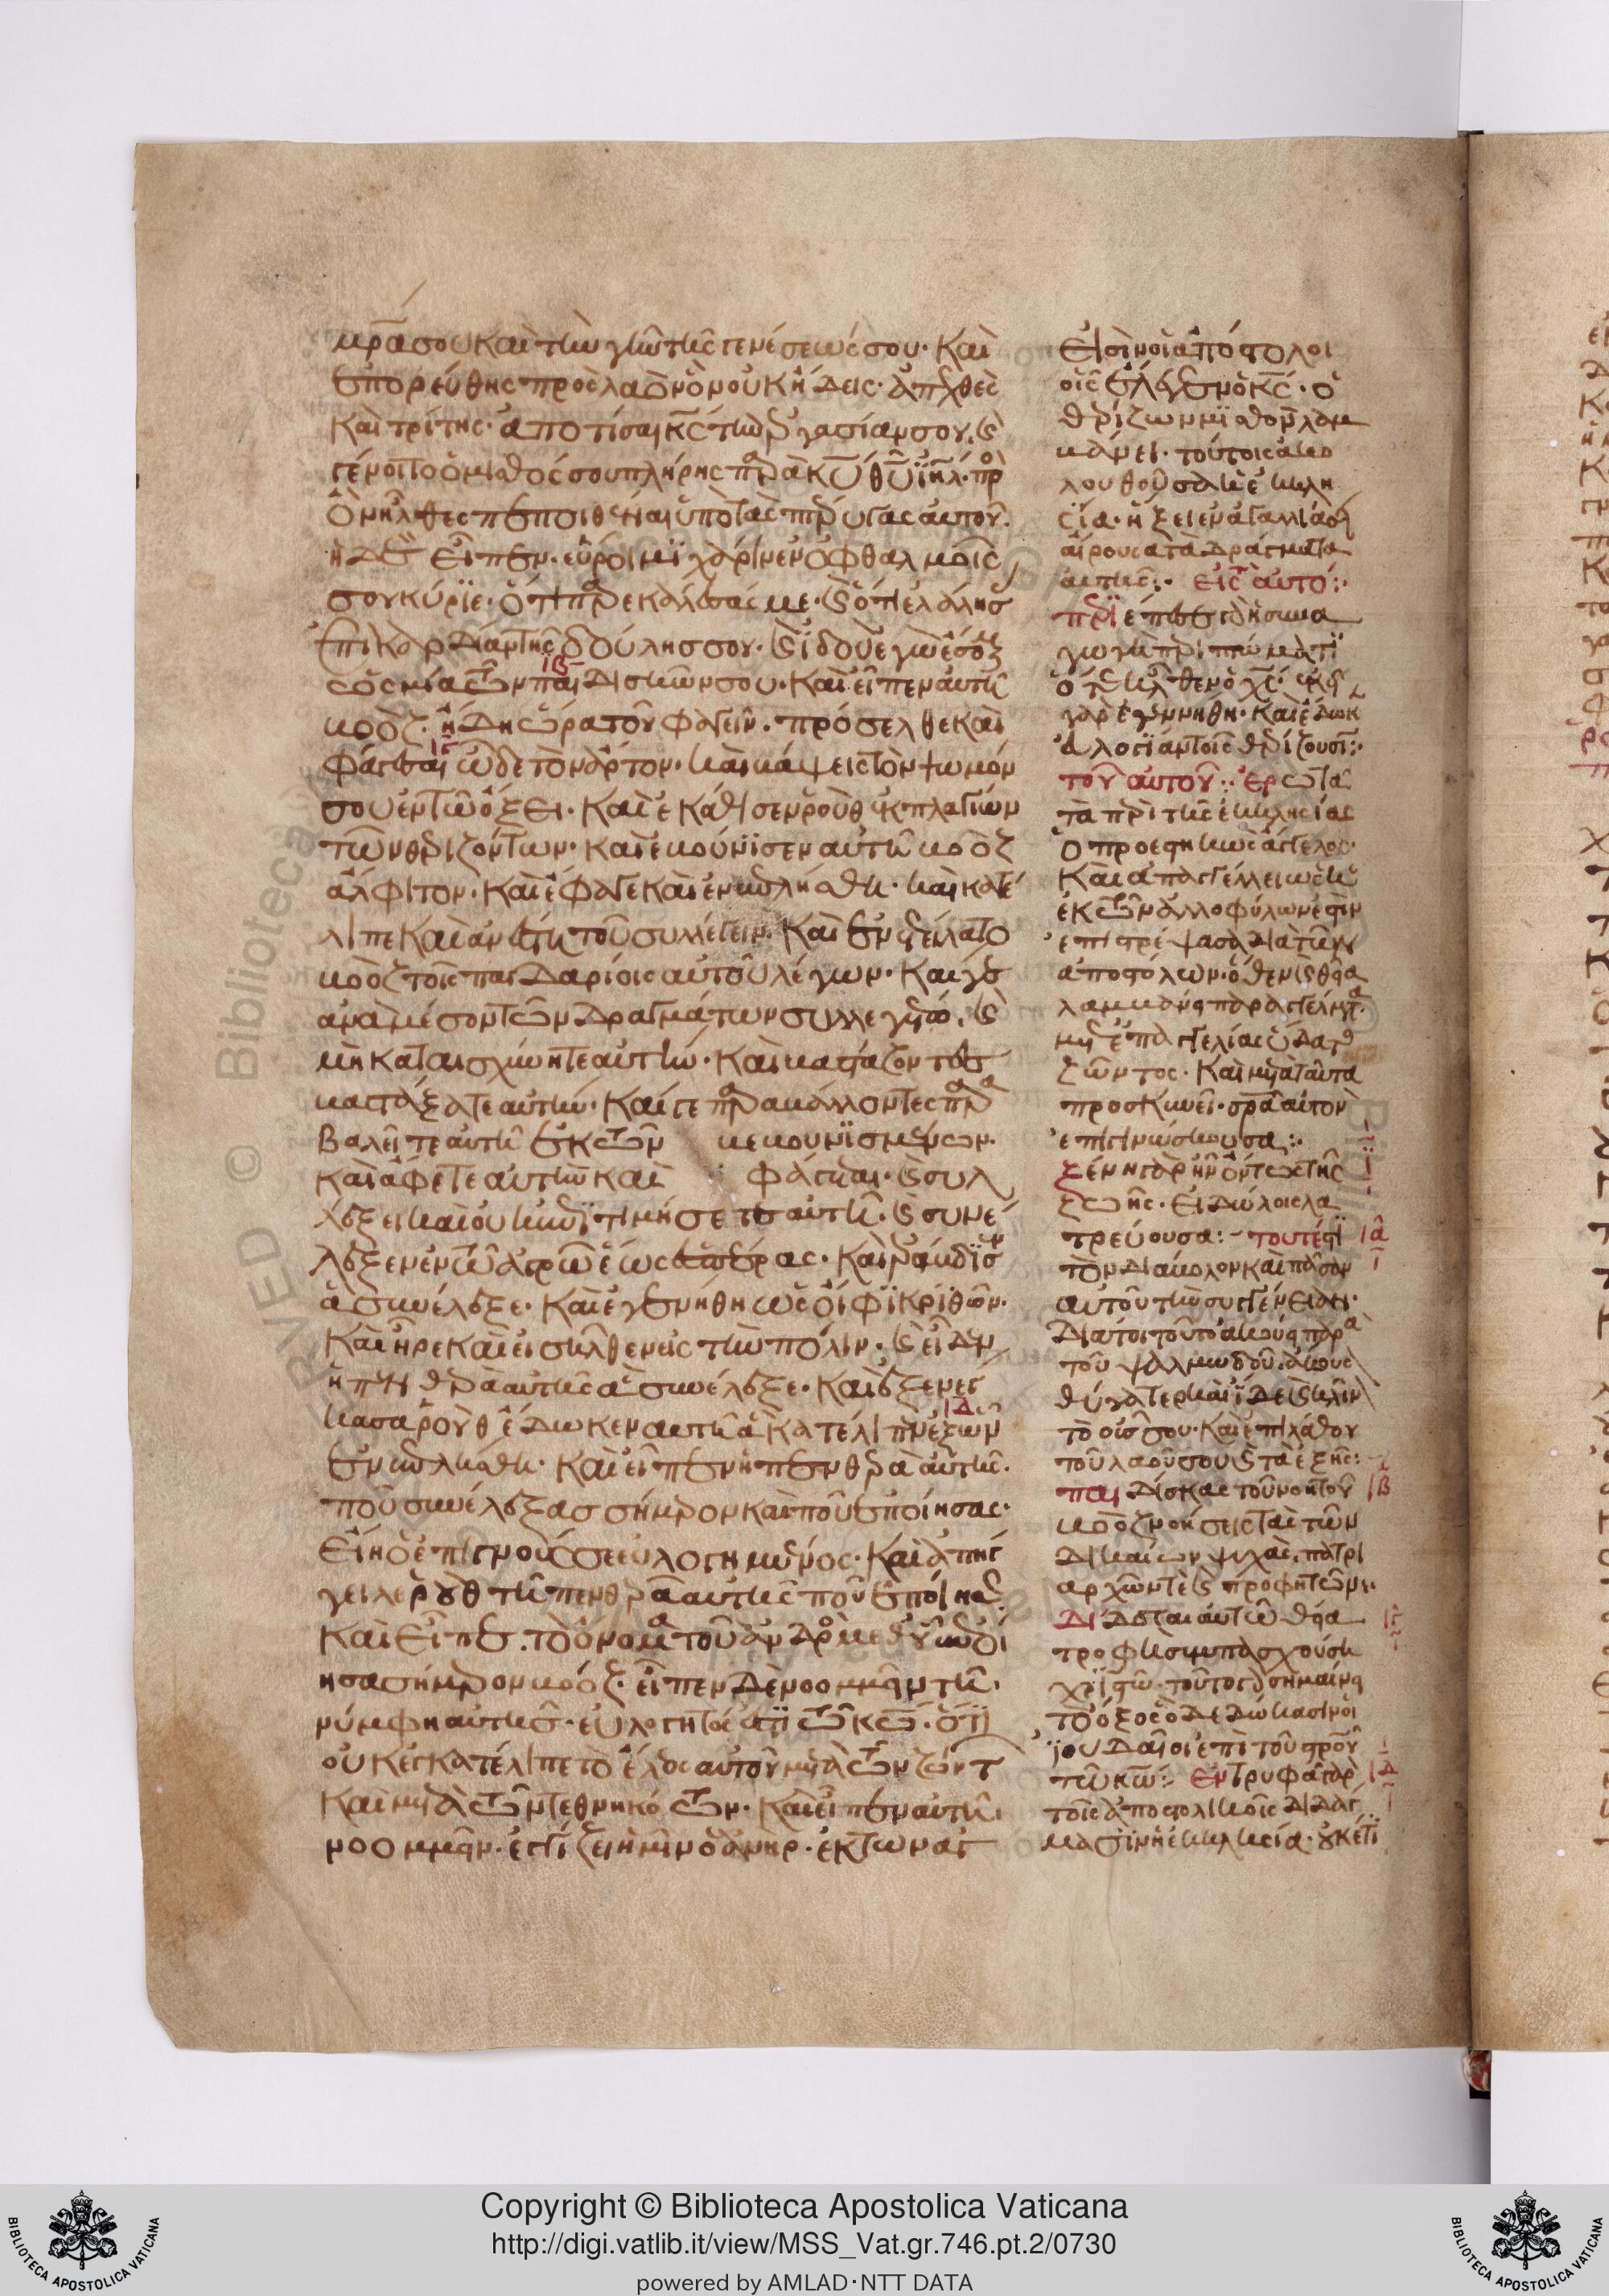 μρ̅α σου καὶ τὴν γῆν τῆς γενέσεώς σου· καὶ
ἐπορεύθης πρὸς λαὸν ὃν οὐκ ᾔδεις· ἀπ' ἐχθὲς
καὶ τρίτης· ἀποτίσαι κ̅ς τὴν ἐργασίαν σου. καὶ
γένοιτο ὁ μισθός σου πλήρης παρὰ κ̅υ θ̅υ ι̅η̅λ· πρὸς
ὃν ἦλθες πεποιθέναι ὑπὸ τὰς πτέρυγας αὐτοῦ.
ἡ δὲ εἶπεν. εὕροιμι χάριν ἐν ὀφθαλμοῖς
σου κύριε· ὅτι παρεκάλεσάς με· καὶ ὅτι ἐλάλησ
ἐπὶ καρδίαν τῆς δούλης σου· καὶ ἰδοὺ ἐγὼ ἔσομ
ὡς μία τῶν παιδισκῶν σου· καὶ εἶπεν αὐτῇ
βοόζ· ἤδη ὥρα τοῦ φαγεῖν· πρόσελθε καὶ
φάγεσαι ὧδε τὸν ἄρτον· καὶ βάψεις τὸν ψωμόν
σου ἐν τῷ ὄξει· καὶ ἐκάθισεν ῥοὺθ ἐκ πλαγίων
τῶν θεριζόντων· καὶ ἐβούνισεν αὐτῇ βοόζ
ἄλφιτον· καὶ ἔφαγε καὶ ἐνεπλήσθη· καὶ κατέ
λιπε καὶ ἀνέστη τοῦ συλλέγειν· καὶ ἐνετείλατο
βοόζ τοῖς παιδαρίοις αὐτοῦ λέγων· καί γε
ἀνὰ μέσον τῶν δραγμάτων συλλεγέτω. καὶ
μὴ καταισχύνητε αὐτήν· καὶ βαστάζοντες
βαστάξατε αὐτήν· καί γε παραβάλλοντες παρα
βαλεῖτε αὐτῇ ἐκ τῶν βεβουνισμένων.
καὶ ἄφετε αὐτὴν καὶ φάγεται· καὶ συλ
λέξει καὶ οὐκ ἐπιτιμήσετε αὐτῇ. καὶ συνέ
λεξεν ἐν τῷ ἀγρῷ ἕως ἑσπέρας· καὶ ἐράβδισεν
ἃ συνέλεξε· καὶ ἐγενήθη ὡς οἰφὶ κριθῶν.
καὶ ἦρε καὶ εἰσῆλθεν εἰς τὴν πόλιν· καὶ εἶδεν
ἡ πενθερὰ αὐτῆς ἃ συνέλεξε· καὶ ἐξενεγ
κᾶσα ῥοὺθ ἔδωκεν αὐτῇ ἃ κατέλιπεν ἐξ ὧν
ἐνεπλήσθη· καὶ εἶπεν ἡ πενθερὰ αὐτῆς.
ποῦ συνέλεξας σήμερον καὶ ποῦ ἐποίησας·
εἴη ὁ ἐπιγνούς σε εὐλογημένος· καὶ ἀπήγ
γειλε ῥοὺθ τῇ πενθερᾷ αὐτῆς ποῦ ἐποίησεν.
καὶ εἶπε. τὸ ὄνομα τοῦ ἀνδρὸς μεθ' οὗ ἐποί
ησα σήμερον βοόζ· εἶπεν δὲ νοομμεὶν τῇ
νύμφῃ αὐτῆς· εὐλογητός ἐστι τῷ κ̅ω̅· ὅτι
οὐκ ἐγκατέλιπε τὸ ἔλεος αὐτοῦ μετὰ τῶν ζώντ
καὶ μετὰ τῶν τεθνηκότων· καὶ εἶπεν αὐτῇ
νοομμείν· ἐγγίζει ἡμῖν ὁ ἀνήρ· ἐκ τῶν ἀγ
εἰσὶν οἱ ἀπόστολοι
οἷς ἔλεγεν ὁ κ̅ς· ὁ
θερίζων μισθὸν λαμ
βάνει· τούτοις ἀκο
λουθοῦσα ἡ ἐκκλη
σία· ἥξει ἐν ἀγαλλιάσει
αἴρουσα τὰ δράγματα
αὐτῆς:· εἰς τὸ αὐτό:·
ὅτε ἦλθεν ὁ χ̅ς· ἐκεῖ
γὰρ ἐγεννήθη· καὶ ἔδωκ
τοῦ αὐτοῦ:· ἐρωτᾷ
τὰ περὶ τῆς ἐκκλησίας
ὁ προεστηκὼς ἄγγελος·
καὶ ἀπαγγέλλει ὡς ἡ
ἐκ τῶν ἀλλοφύλων ἐστὶν
ἐπιστρέψασα διὰ τῶν
ἀποστόλων· ὅθεν καὶ θεία
λαμβάνει παραγγέλματα
μετ' ἐπαγγελίας ὕδατος
ζῶντος· καὶ μετὰ ταῦτα
προσκυνεῖ· σρ̅α αὐτὸν
ἐπιγινώσκουσα:·
ξένη γὰρ ἦν ὄντως τῆς
ζωῆς· εἰδώλοις λα
τρεύουσα:- τουτέστι
τὸν διάβολον καὶ πᾶσαν
αὐτοῦ τὴν συγγένειαν·
διά τοι τοῦτο ἀκούει παρὰ
τοῦ ψαλμωδοῦ. ἄκουσον
θύγατερ καὶ ἴδε καὶ κλῖνον
τὸ οὖς σου· καὶ ἐπιλάθου
τοῦ λαοῦ σου καὶ τὰ ἑξῆς:·
παιδίσκας τοῦ νοητοῦ
βοόζ νοήσεις τὰς τῶν
δικαίων ψυχάς, πατρι
αρχῶν τε καὶ προφητῶν:·
δίδοται αὐτῷ θεία
τροφὴ συμπασχούσῃ
χριστῷ· τοῦτο γὰρ σημαίνει
τὸ ὄξος ὃ δεδώκασιν οἱ
ἰουδαῖοι ἐπὶ τοῦ σρ̅οῦ
τῷ κ̅ω̅:· ἐντρυφᾷ γὰρ
τοῖς ἀποστολικοῖς διδάγ
μασιν ἡ ἐκκλησία· οὐκέτι
Copyright © Biblioteca Apostolica Vaticana
http://digi.vatlib.it/view/MSS_Vat.gr.746.pt.2/0730
powered by AMLAD·NTT DATA
BIBLIOTECA APOSTOLICA VATICANA
BIBLIOTECA APOSTOLICA VATICANA